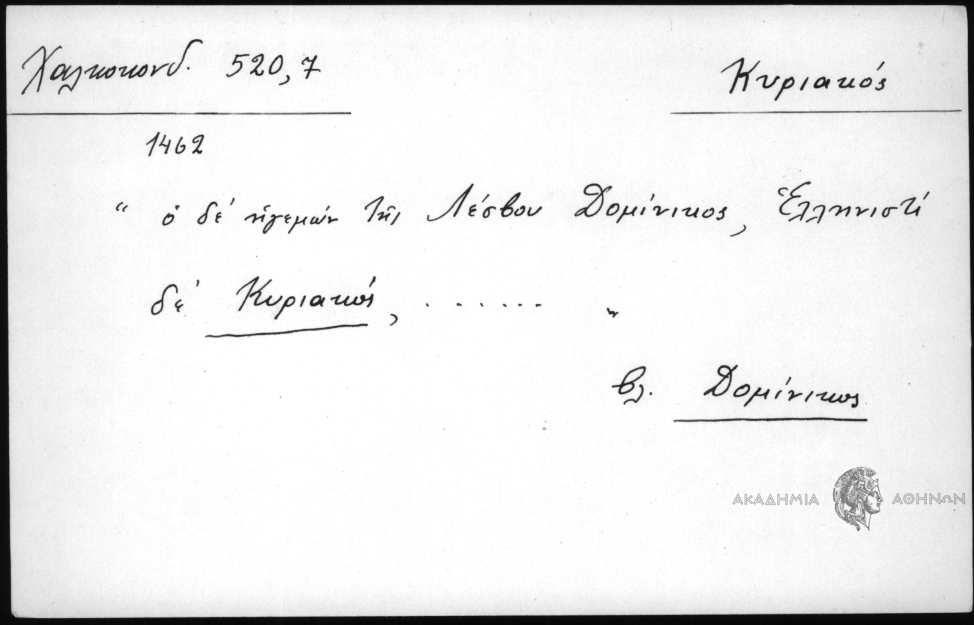 Χαλκοκονδ. 520,7
Κυριακός
1462
“ ὁ δέ ἡγεμών τῆς Λέσβου Δομίνικος, Ἑλληνιστί
δέ Κυριακός, . . . . . . . „
βλ. Δομίνικος
ΑΚΑΔΗΜΙΑ ΑΘΗΝΩΝ